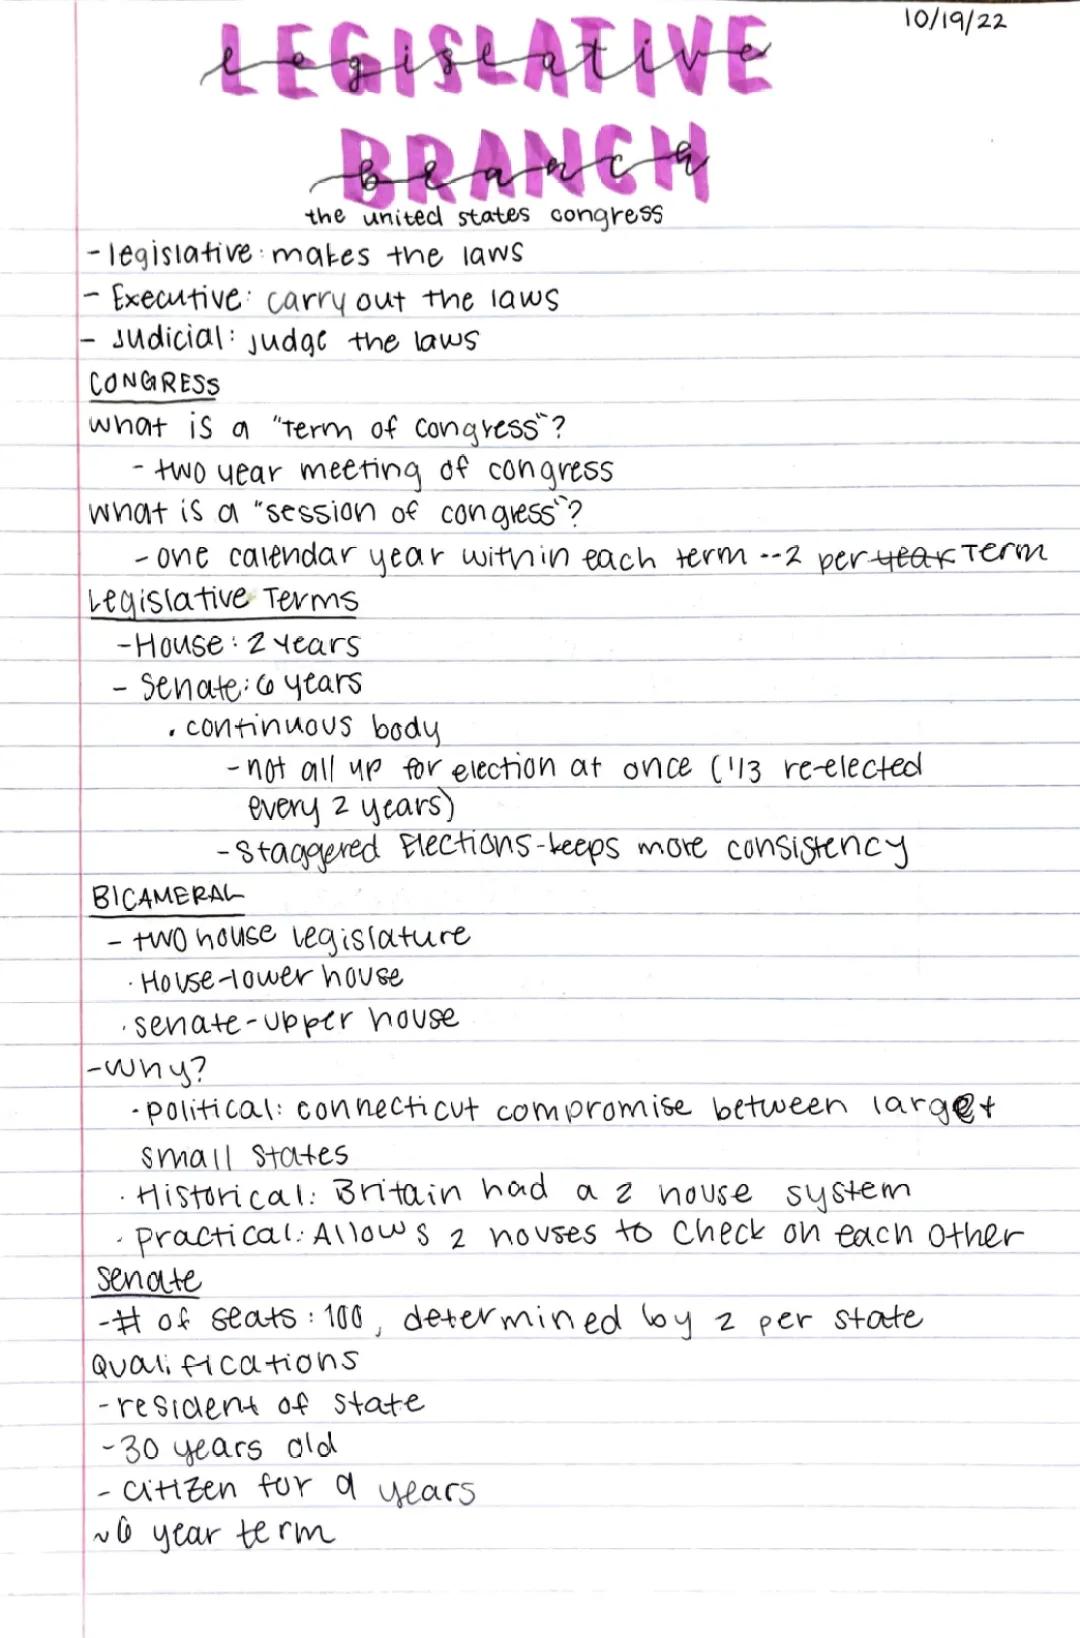 10/19/22
LEGISLATIVE
legislative
BRANCH
branch
the united states congress
- legislative: makes the laws
- Executive: carry out the laws
- Judicial: judge the laws
CONGRESS
what is a "term of congress"?
- two year meeting of congress
what is a "session of congress"?
- one calendar year within each term -- 2 per year Term
Legislative Terms
- House: 2 years
- Senate: 6 years
• continuous body
- not all up for election at once (1/3 re-elected
every 2 years)
- staggered Elections - keeps more consistency
BICAMERAL
- two house legislature
• House - lower house
• senate - upper house
- Why?
• political: connecticut compromise between large +
small states
• Historical: Britain had a 2 house system
• practical: Allows 2 houses to check on each other
senate
- # of seats: 100, determined by 2 per state
Qualifications
- resident of state
- 30 years old
- citizen for 9 years
~ 6 year term